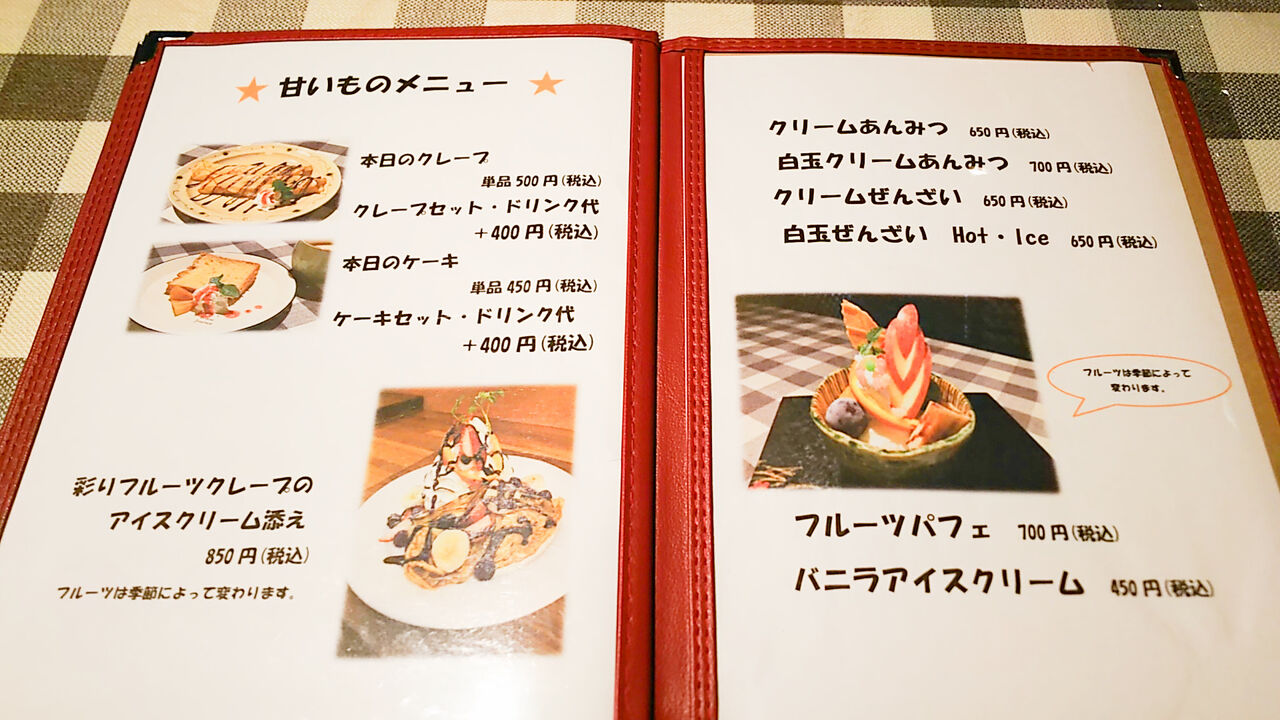 ★ 甘いものメニュー ★
本日のクレープ
単品500円(税込)
クレープセット・ドリンク代
＋400円(税込)
本日のケーキ
単品450円(税込)
ケーキセット・ドリンク代
＋400円(税込)
彩りフルーツクレープの
アイスクリーム添え
850円(税込)
フルーツは季節によって変わります。
クリームあんみつ 650円(税込)
白玉クリームあんみつ 700円(税込)
クリームぜんざい 650円(税込)
白玉ぜんざい Hot・Ice 650円(税込)
フルーツは季節によって
変わります。
フルーツパフェ 700円(税込)
バニラアイスクリーム 450円(税込)